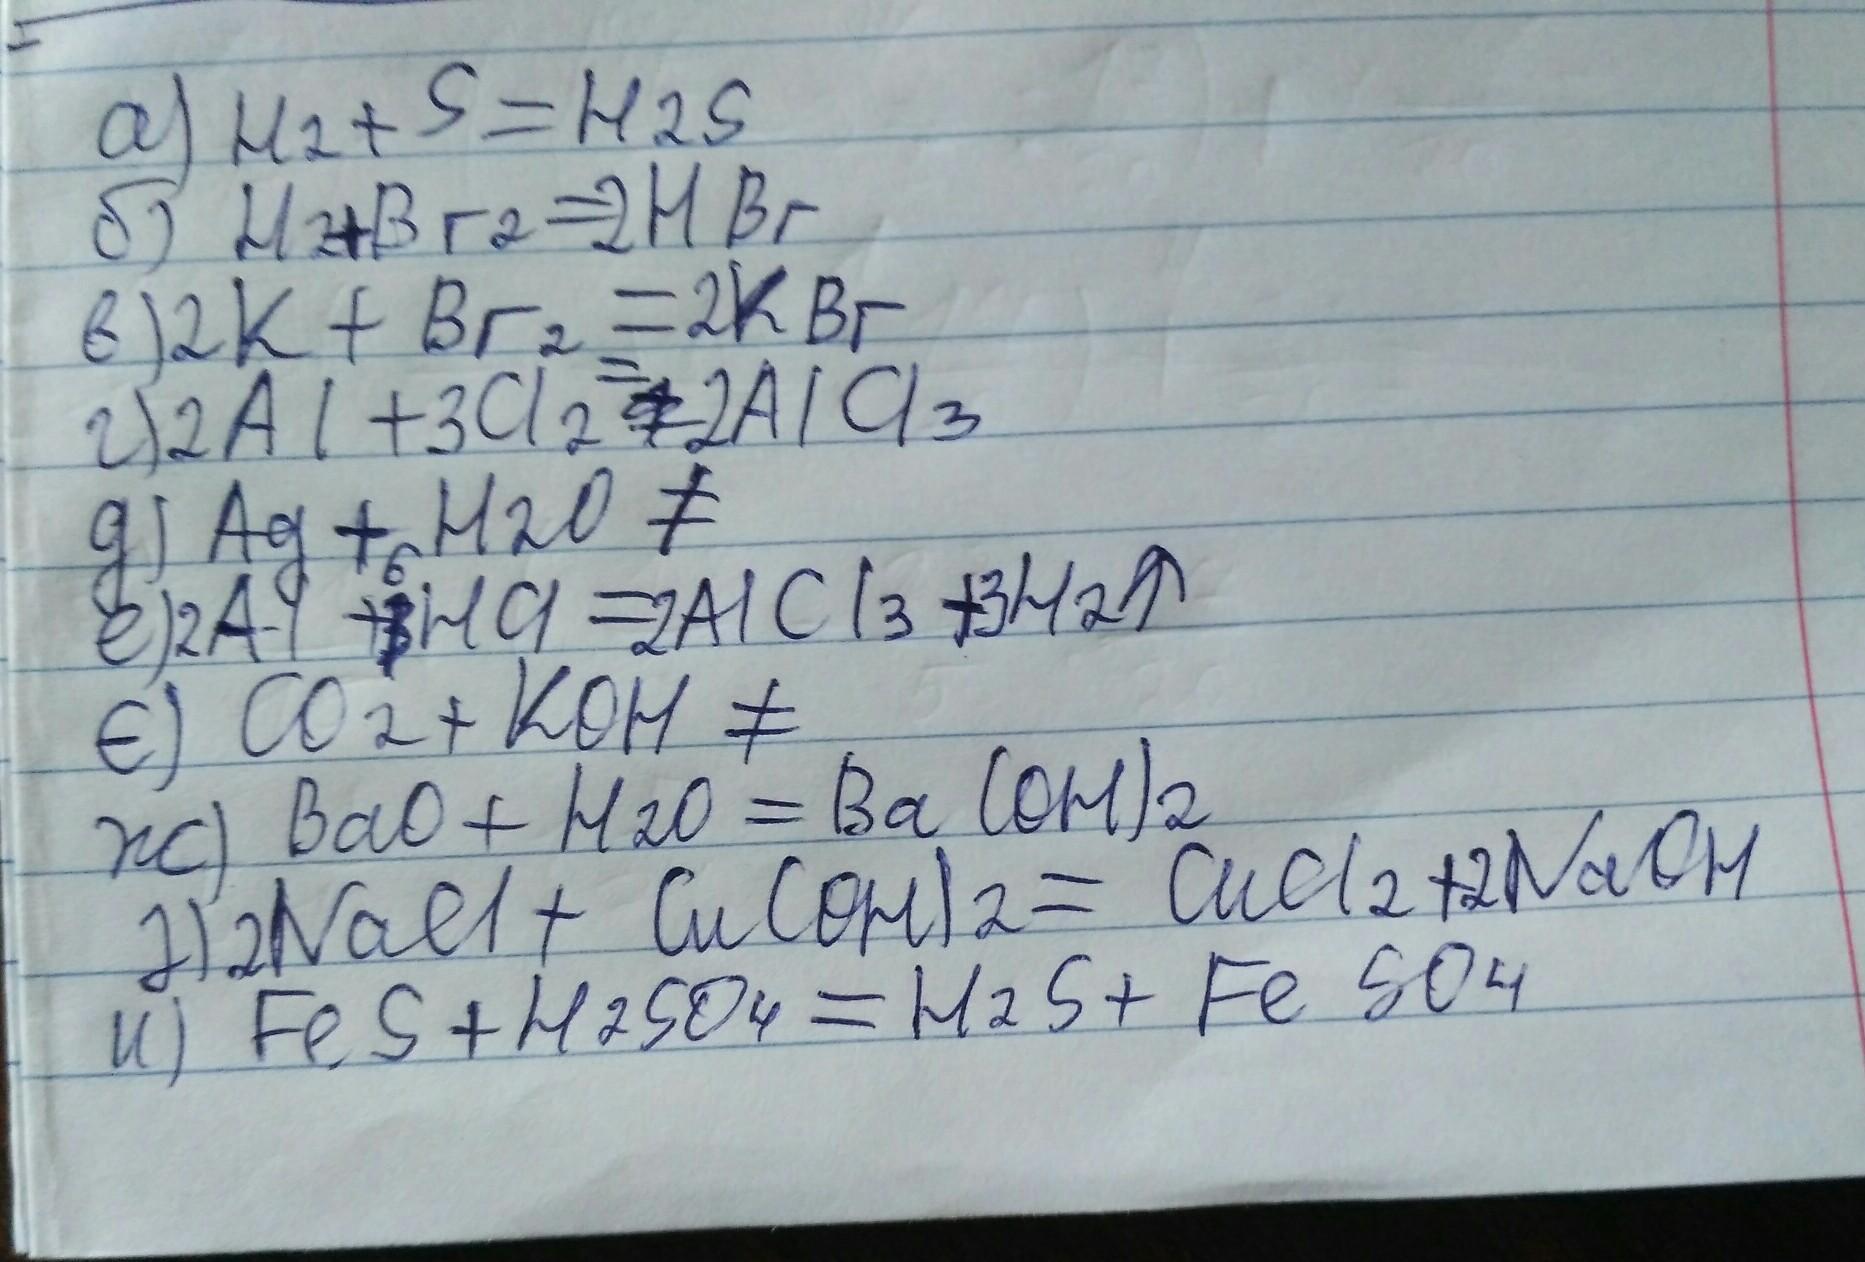 а) H2 + S = H2S
б) H2 + Br2 = 2HBr
в) 2K + Br2 = 2KBr
г) 2Al + 3Cl2 = 2AlCl3
д) Ag + H2O ≠
е) 2Al + 6HCl = 2AlCl3 + 3H2↑
є) CO2 + KOH ≠
ж) BaO + H2O = Ba(OH)2
з) 2NaCl + Cu(OH)2 = CuCl2 + 2NaOH
и) FeS + H2SO4 = H2S + FeSO4